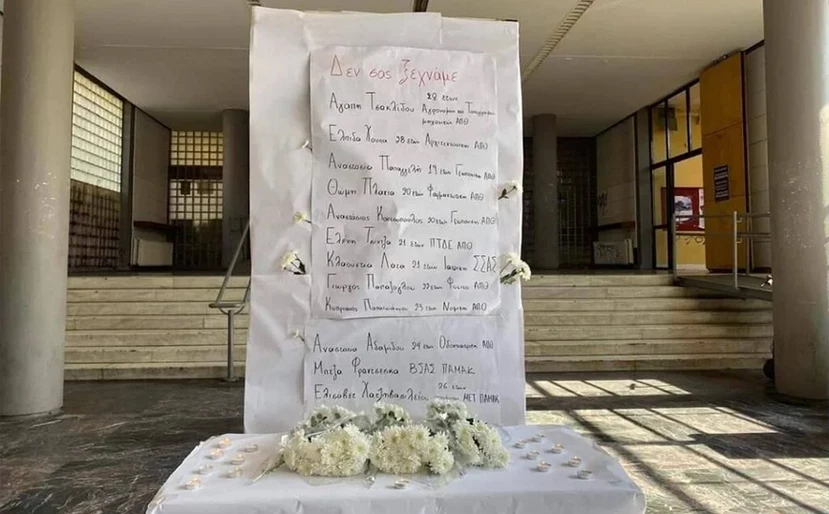 Δεν σας ξεχνάμε
Αγάπη Τσακλίδου 28 ετών
Αγρονόμων και Τοπογράφων
μηχανικών ΑΠΘ
Ελπίδα Χούπα 28 ετών Αρχιτεκτόνων ΑΠΘ
Αναστασία Παπαγγελή 19 ετών Γεωπονία ΑΠΘ
Θώμη Πλακιά 20 ετών Φαρμακευτική ΑΠΘ
Αναστάσιος 20 ετών Γεωπονία ΑΠΘ
Ελένη Τσίντζα 21 ετών ΠΤΔΕ ΑΠΘ
Κλαούντια Λάτα 21 ετών Ιατρική ΣΣΑΣ
Γιώργος Παπάζογλου 22 ετών Φυσικό ΑΠΘ
Κυπριανός 23 ετών Νομική ΑΠΘ
Αναστασία Αδαμίδου 24 ετών Οδοντιατρική ΑΠΘ
Μπέζα Φραντσέσκα ΒΣΑΣ ΠΑΜΑΚ
Ελισάβετ Χατζηβασιλείου 26 ετών ΜΕΤ ΠΑΜΑΚ